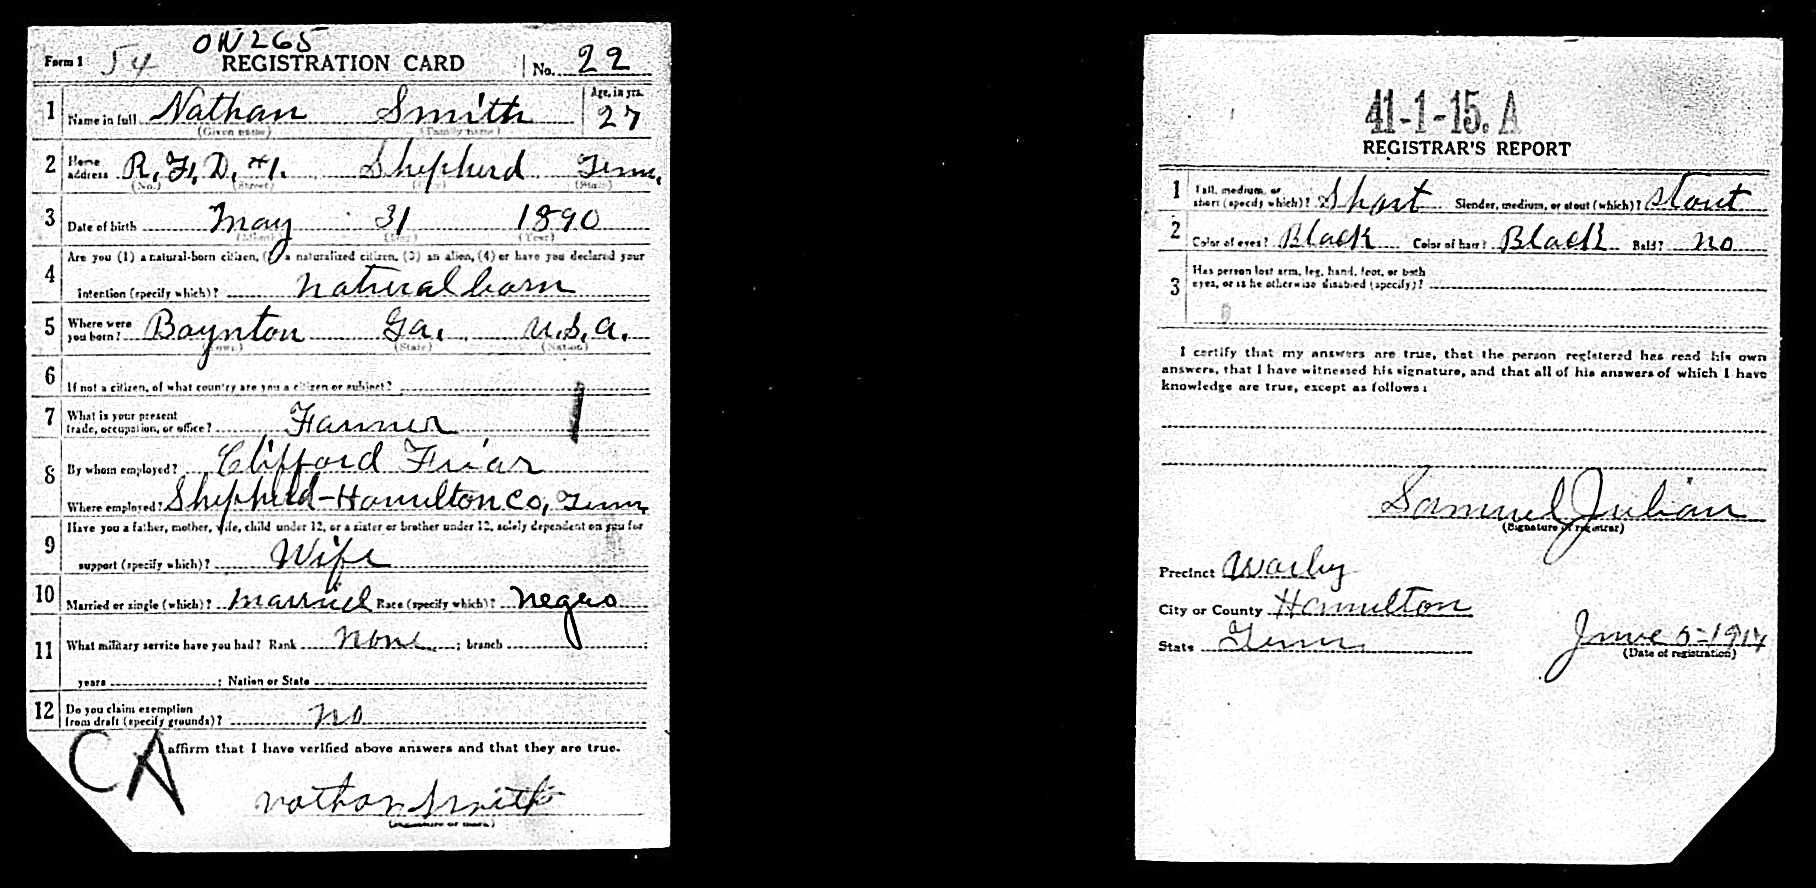 ON265
Form 1 54 REGISTRATION CARD No. 22
1 Name in full Nathan Smith Age, in yrs. 27
(Given name) (Family name)
2 Home address R.F.D. #1. Shepherd Tenn.
(No.) (Street) (City) (State)
3 Date of birth May 31 1890
(Month) (Day) (Year)
4 Are you (1) a natural-born citizen, (2) a naturalized citizen, (3) an alien, (4) or have you declared your
intention (specify which)? natural born
5 Where were you born? Boynton Ga. U.S.A.
(Town) (State) (Nation)
6 If not a citizen, of what country are you a citizen or subject?
7 What is your present
trade, occupation, or office? Farmer
8 By whom employed? Clifford Friar
Where employed? Shepherd-Hamilton Co, Tenn
9 Have you a father, mother, wife, child under 12, or a sister or brother under 12, solely dependent on you for
support (specify which)? Wife
10 Married or single (which)? married Race (specify which)? negro
11 What military service have you had? Rank none ; branch ;
years ; Nation or State
12 Do you claim exemption
from draft (specify grounds)? no
I affirm that I have verified above answers and that they are true.
CA
Nathan Smith
(Signature or mark)
41-1-15. A
REGISTRAR'S REPORT
1 Tall, medium, or
short (specify which)? Short Slender, medium, or stout (which)? stout
2 Color of eyes? Black Color of hair? Black Bald? no
3 Has person lost arm, leg, hand, foot, or both
eyes, or is he otherwise disabled (specify)?
I certify that my answers are true, that the person registered has read his own
answers, that I have witnessed his signature, and that all of his answers of which I have
knowledge are true, except as follows:
Samuel Julian
(Signature of registrar)
Precinct
City or County Hamilton
State Tenn.
June 5-1917
(Date of registration)